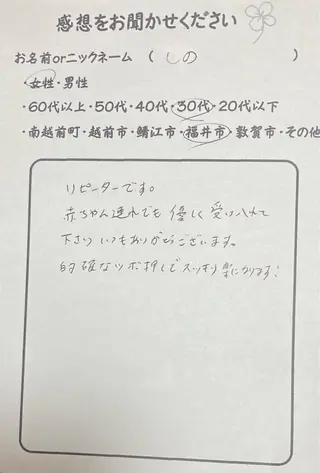 感想をお聞かせください
お名前orニックネーム （ しの ）
・女性・男性
・60代以上・50代・40代・30代・20代以下
・南越前町・越前市・鯖江市・福井市・敦賀市・その他
リピーターです。
赤ちゃん連れでも優しく受け入れて
下さりいつもありがとうございます。
的確なツボ押しでスッキリ楽になります!